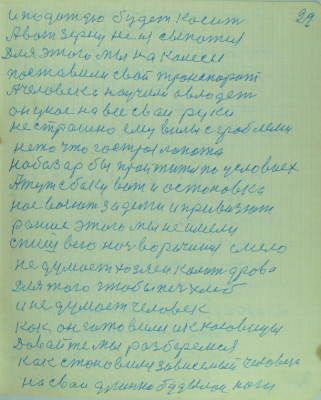 29
и подождю будет косит
А вот зерну не и сыпатия
Для этого мы на колеси
поставили свой транспорт
А человека научили овлодет
он умое на все сваи руки
не страшно ему вилы с граблеми
не по что гострая лопата
на базар бы пройтити по условиех
А тут сбаку вот и остоновка
нас возит за деги и привозют
ранше этого мы не имели
спиш всю ноч ворочиш смело
не думает хозяен колот дрова
для того чтобы печ хлеб
и не думает человек
как он готовили их косовицы
Довайте мы разберемся
как стоновилы зависемый человек
на сваи длинно будылои ноги